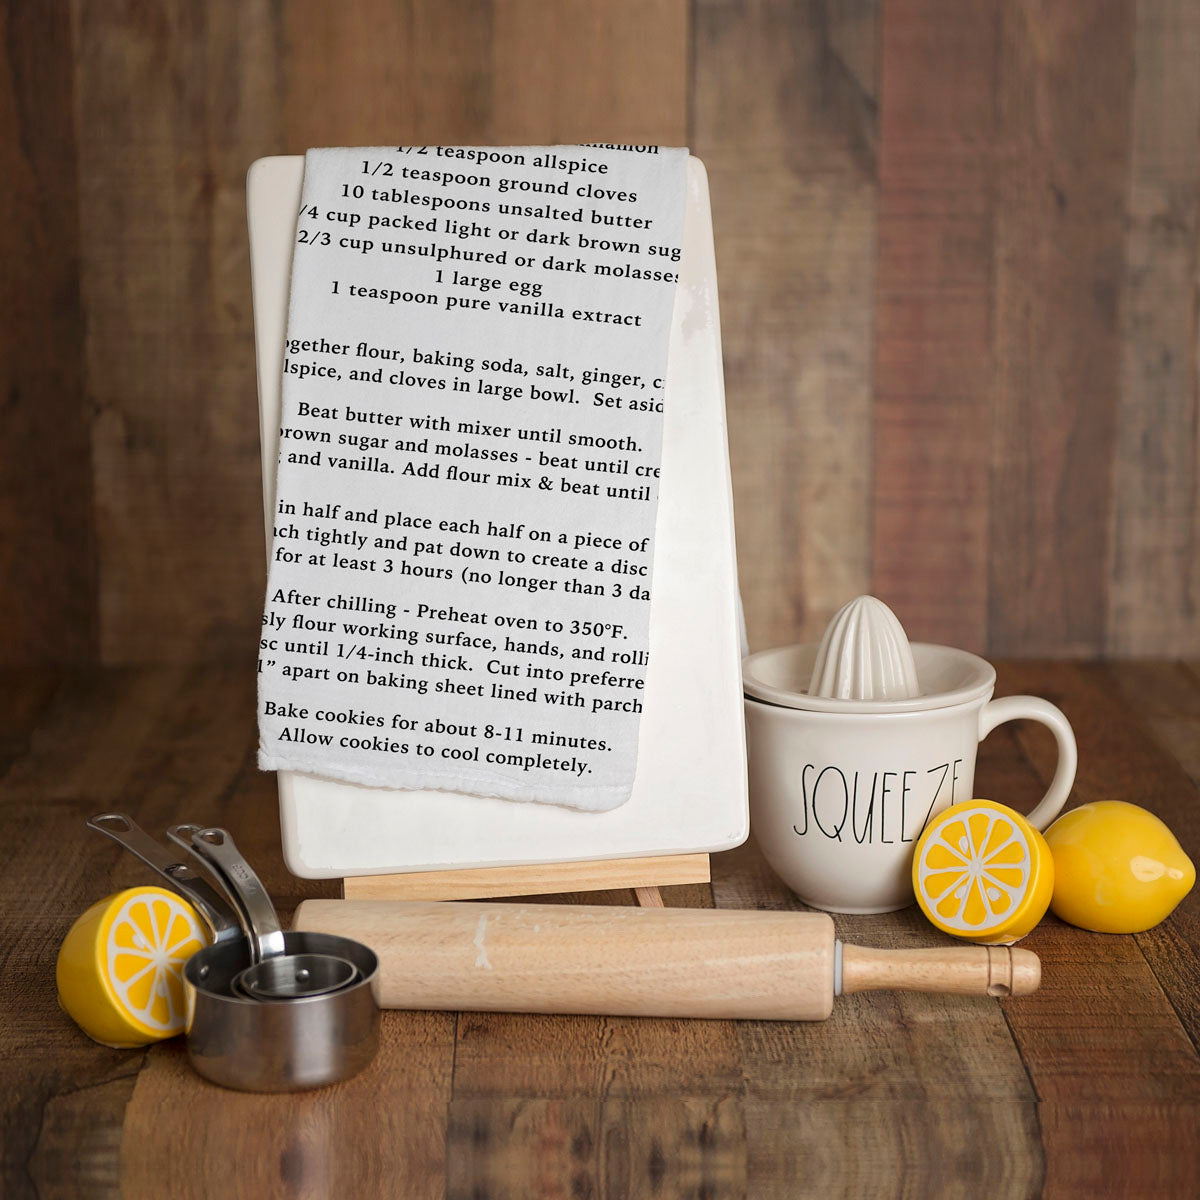 1/2 teaspoon allspice
1/2 teaspoon ground cloves
10 tablespoons unsalted butter
/4 cup packed light or dark brown sug
2/3 cup unsulphured or dark molasses
1 large egg
1 teaspoon pure vanilla extract
ogether flour, baking soda, salt, ginger, c
lspice, and cloves in large bowl. Set asid
Beat butter with mixer until smooth.
brown sugar and molasses - beat until cre
and vanilla. Add flour mix & beat until
in half and place each half on a piece of
ach tightly and pat down to create a disc
for at least 3 hours (no longer than 3 da
After chilling - Preheat oven to 350°F.
sly flour working surface, hands, and rolli
sc until 1/4-inch thick. Cut into preferre
1” apart on baking sheet lined with parch
Bake cookies for about 8-11 minutes.
Allow cookies to cool completely.
SQUEEZE